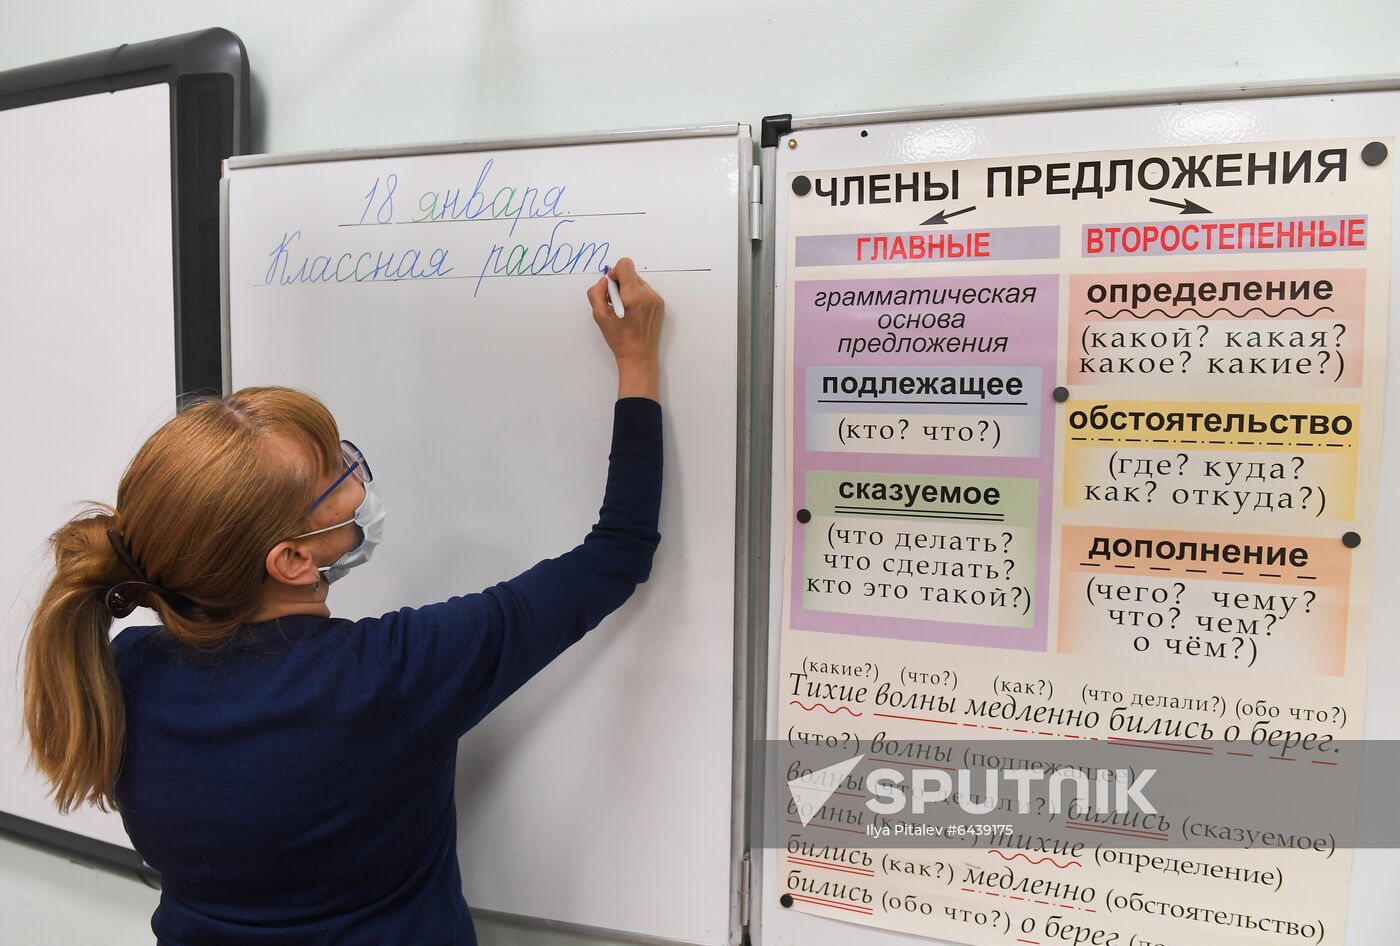 18 января.
Классная работ
ЧЛЕНЫ ПРЕДЛОЖЕНИЯ
ГЛАВНЫЕ
грамматическая
основа
предложения
подлежащее
(кто? что?)
сказуемое
(что делать?
что сделать?
кто это такой?)
ВТОРОСТЕПЕННЫЕ
определение
(какой? какая?
какое? какие?)
обстоятельство
(где? куда?
как? откуда?)
дополнение
(чего? чему?
что? чем?
о чём?)
(какие?) (что?) (как?) (что делали?) (обо что?)
Тихие волны медленно бились о берег.
(что?) волны (подлежащее)
волны (что делали?) бились (сказуемое)
волны (какие?) тихие (определение)
бились (как?) медленно (обстоятельство)
бились (обо что?) о берег
SPUTNIK
Ilya Pitalev © 6439175